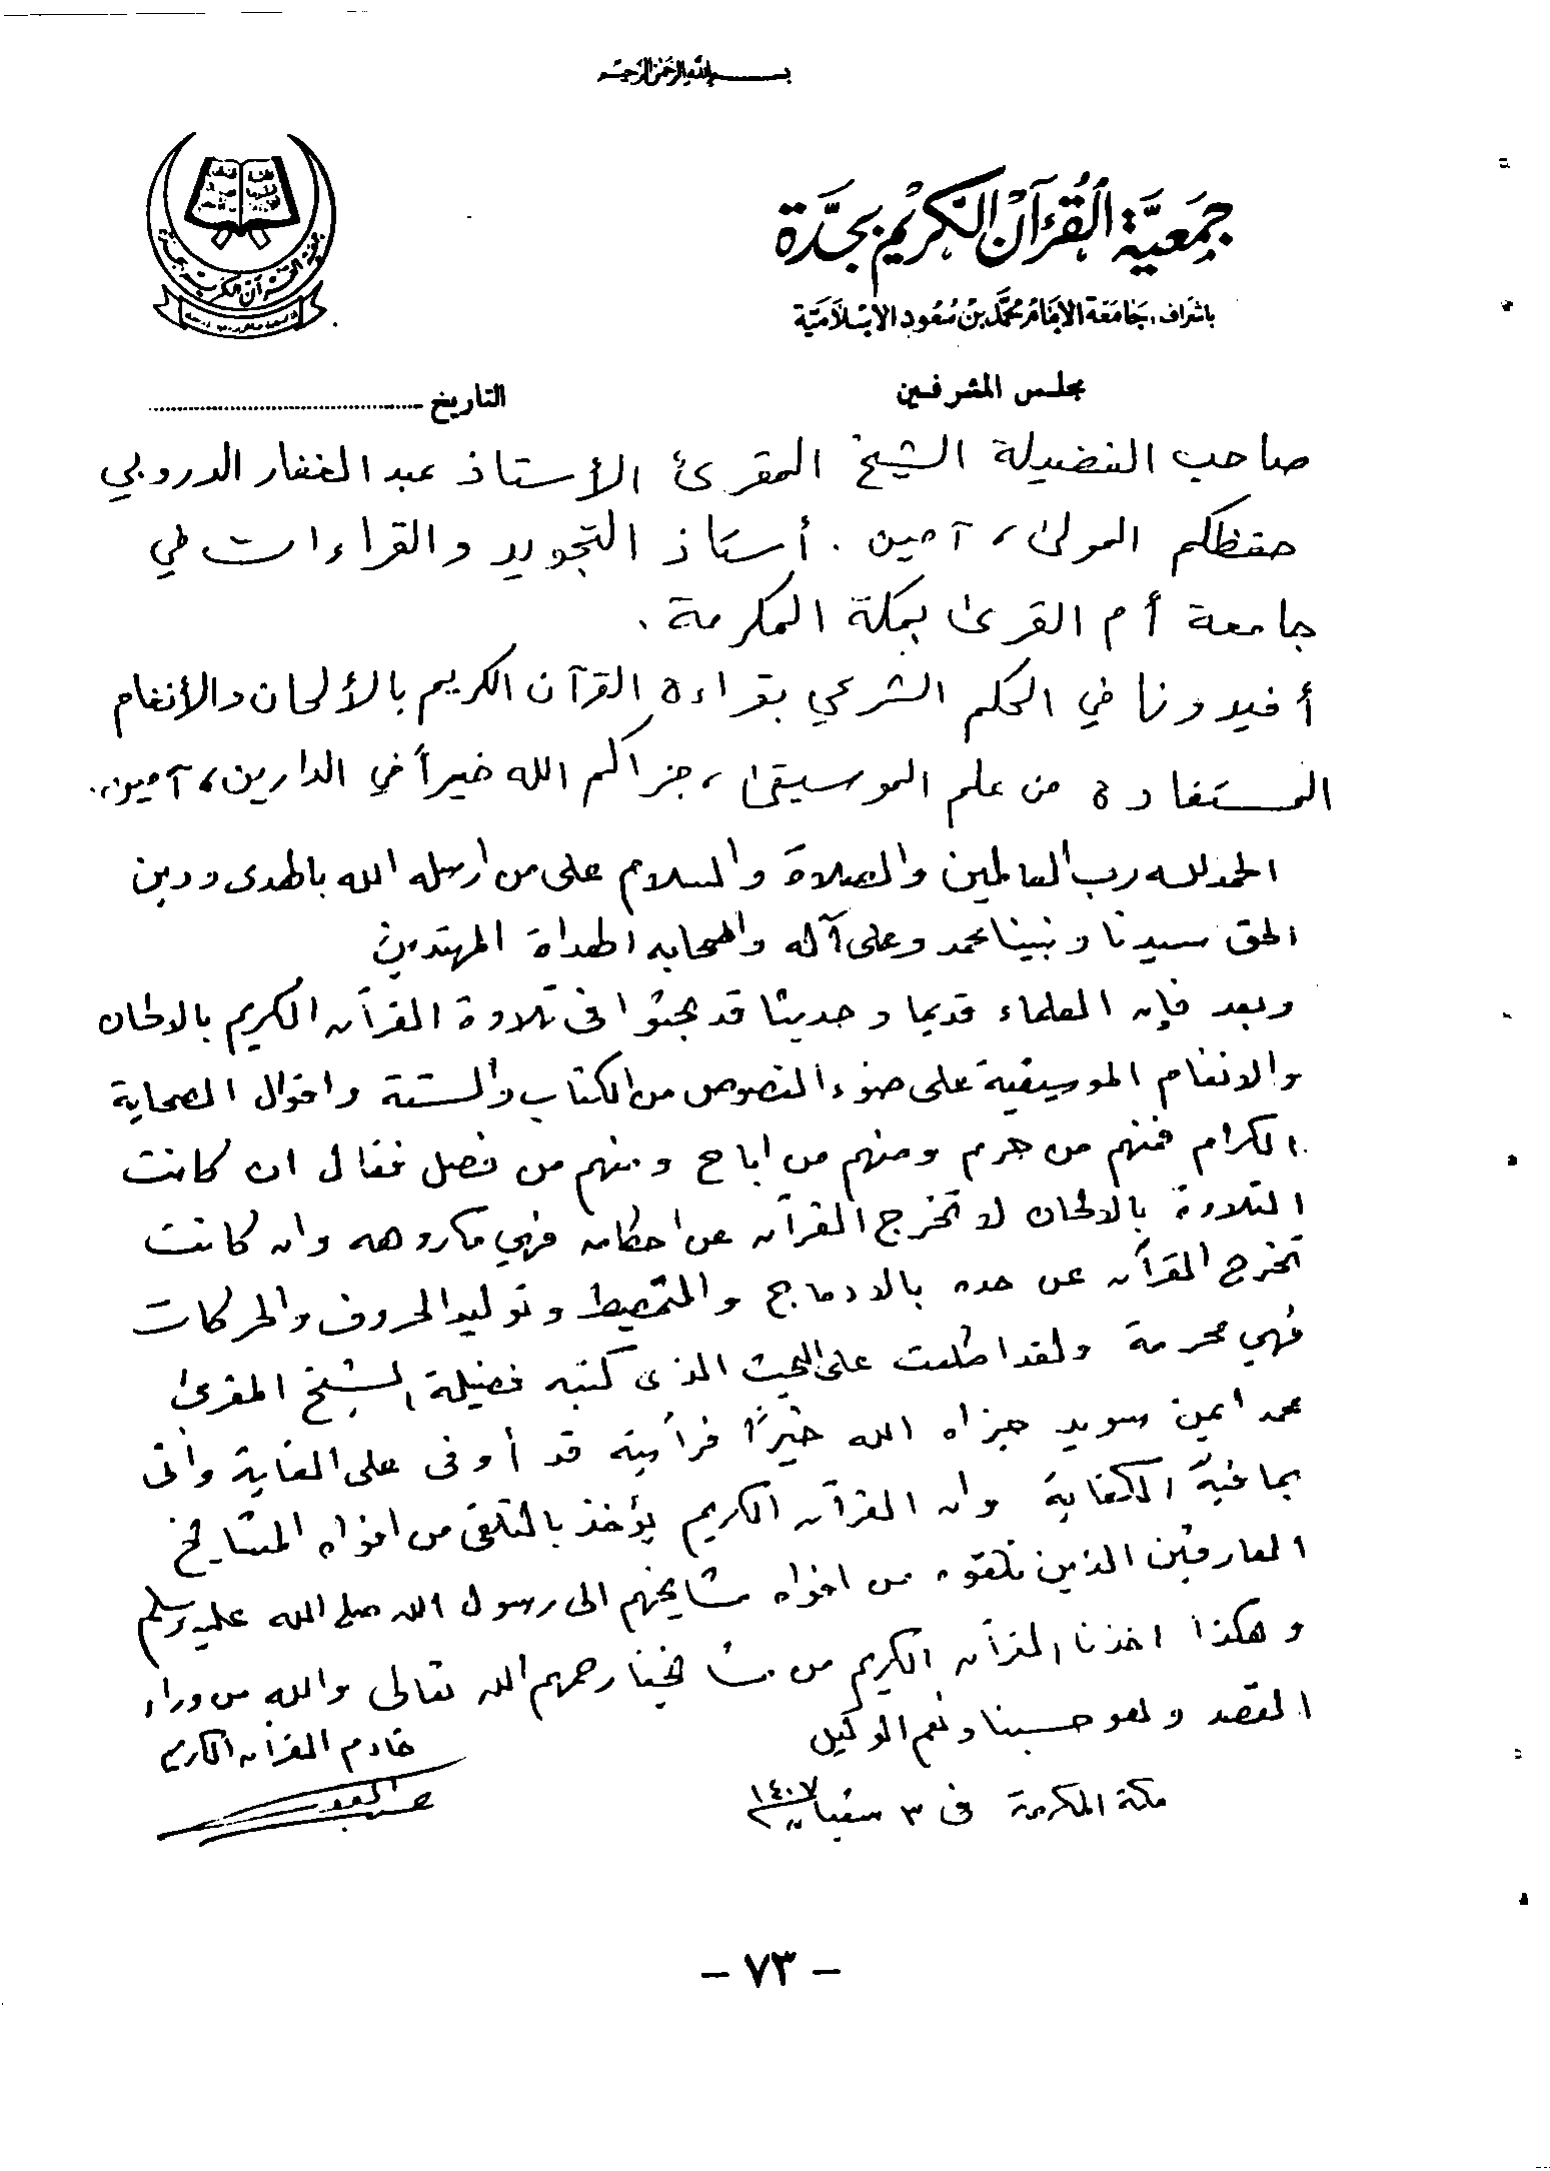 بسم الله الرحمن الرحيم
جمعية القرآن الكريم بجدة
باشراف، جامعة الإمام محمد بن سعود الإسلامية
مجلس المشرفين
التاريخ
صاحب الفضيلة الشيخ المقرئ الأستاذ عبد الغفار الدروبي
حفظكم المولى، آمين. أستاذ التجويد والقراءات في
جامعة أم القرى بمكة المكرمة.
أفيدونا في الحكم الشرعي بقراءة القرآن الكريم بالألحان والأنغام
المستفادة من علم الموسيقى، جزاكم الله خيراً في الدارين، آمين.
الحمد لله رب العالمين والصلاة والسلام على من ارسله الله بالهدى ودين
الحق سيدنا ونبينا محمد وعلى آله واصحابه الهداة المهتدين
وبعد فإن العلماء قديما وحديثا قد بحثوا فى تلاوة القرآن الكريم بالالحان
والانغام الموسيقية على ضوء النصوص من الكتاب والسنة واقوال الصحابة
الكرام فمنهم من حرم ومنهم من اباح ومنهم من فصل فقال ان كانت
التلاوة بالالحان لا تخرج القرآن عن احكامه فهي مكروهه وان كانت
تخرج القرآن عن حده بالادماج والتمطيط وتوليد الحروف والحركات
فهي محرمة ولقد اطلعت على البحث الذى كتبه فضيلة الشيخ المقرئ
محمد ايمن سويد جزاه الله خيرًا فرأيته قد أوفى على الغاية وأتى
بما فيه الكفاية وان القرآن الكريم يؤخذ بالتلقى من افواه المشايخ
العارفين الذين تلقوه من افواه مشايخهم الى رسول الله صلى الله عليه وسلم
وهكذا اخذنا القرآن الكريم من مشايخنا رحمهم الله تعالى والله من وراء
القصد وهو حسبنا ونعم الوكيل
خادم القرآن الكريم
مكة المكرمة فى ٣ شعبان ١٤٠٧
- ٧٣ -